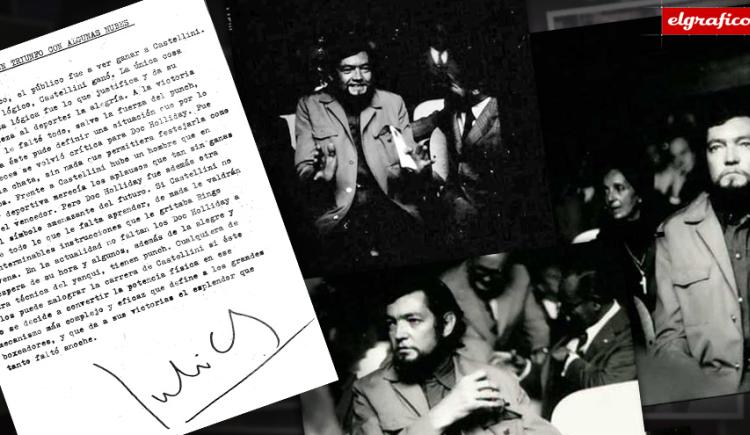 elgrafico
N TRIUNFO CON ALGUNAS NUBES
o, el público fue a ver ganar a Castellini.
lógico, Castellini ganó. La única cosa
a lógica fue lo que justifica y da su
eza al deporte: la alegría. A la victoria
le faltó todo, salvo la fuerza del punch,
a éste pudo definir una situación que por lo
eces se volvió crítica para Doc Holliday. Fue
ia chata, sin nada que permitiera festejarla como
a. Frente a Castellini hubo un hombre que en
deportiva merecía los aplausos que tan sin ganas
el vencedor. Pero Doc Holliday fue además otra
símbolo amenazante del futuro. Si Castellini no
e todo lo que le falta aprender, de nada le valdrán
terminables instrucciones que le gritaba Ringo
vena. En la actualidad no faltan los Doc Holliday a
espera de su hora y algunos, además de la alegre y
ra técnica del yanqui, tienen punch. Cualquiera de
los puede malograr la carrera de Castellini si éste
o se decide a convertir la potencia física en ese
mecanismo más complejo y eficaz que define a los grandes
boxeadores, y que da a sus victorias el esplendor que
tanto faltó anoche.